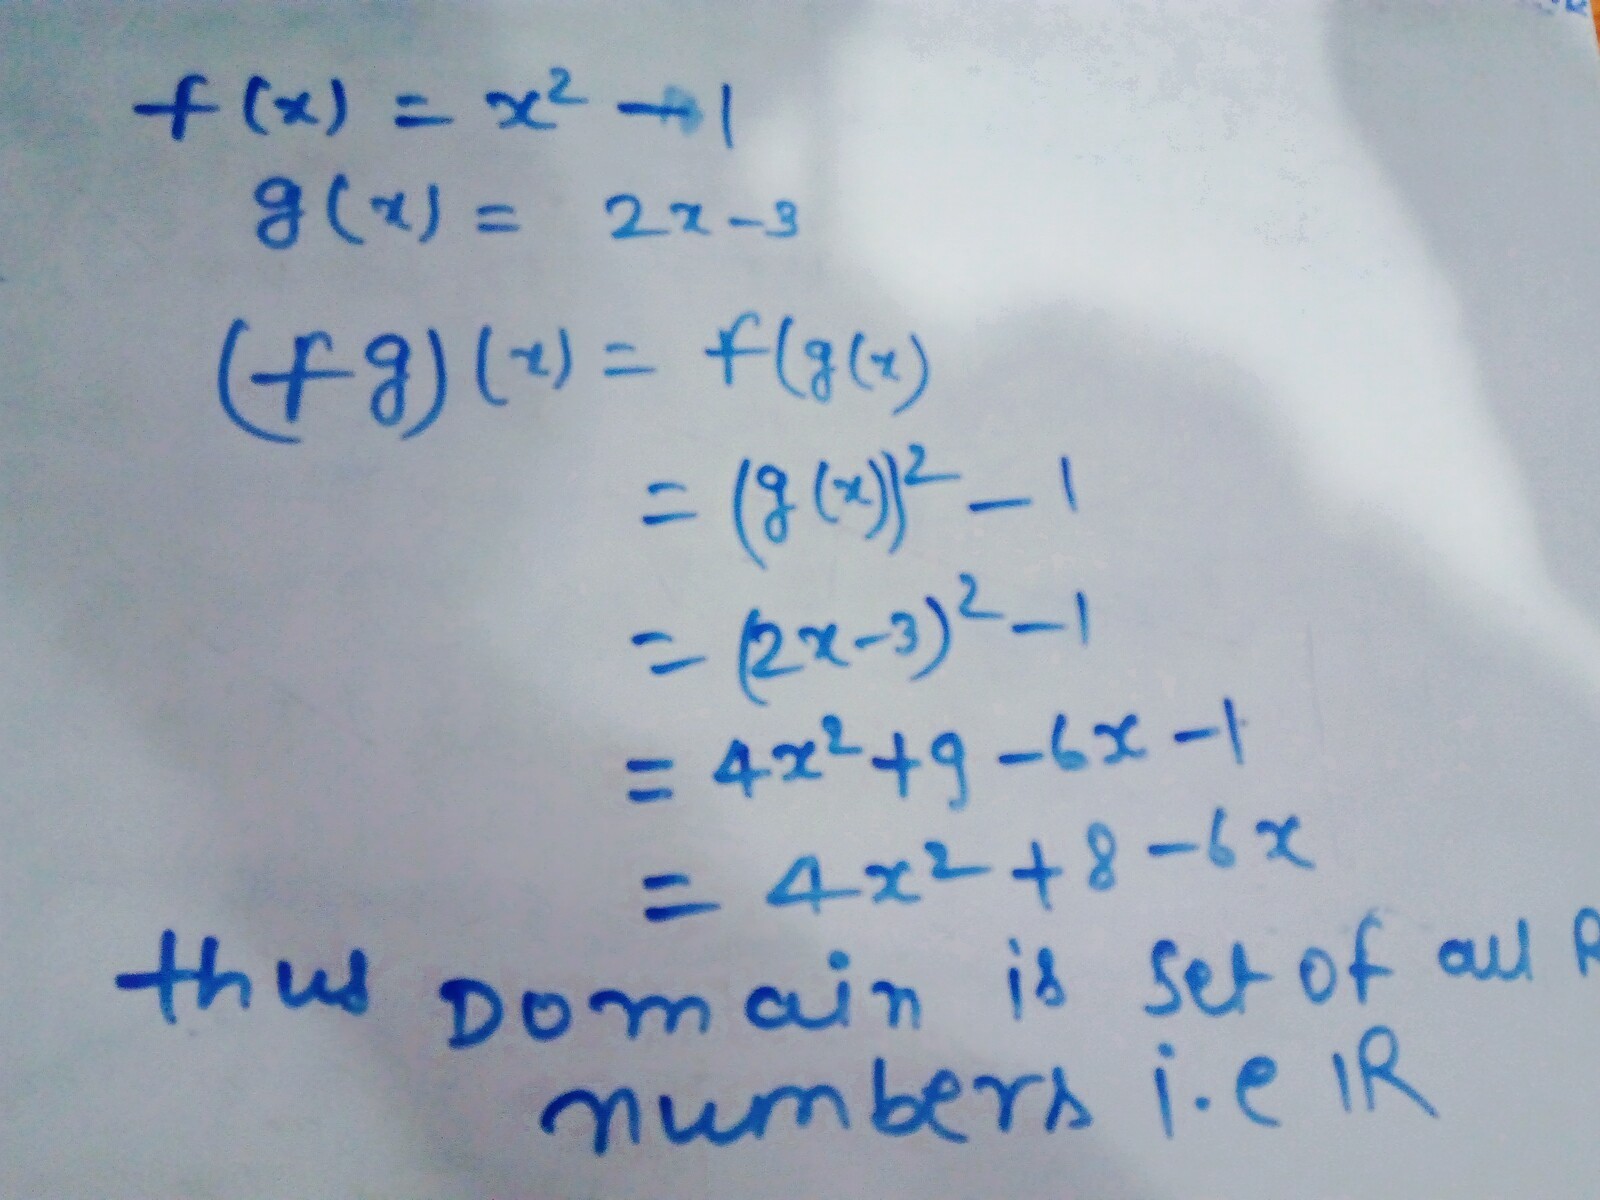 f(x) = x² - 1
g(x) = 2x-3
(fg)(x) = f(g(x)
= (g(x))² - 1
= (2x-3)² - 1
= 4x² + 9 - 6x - 1
= 4x² + 8 - 6x
thus Domain is set of all
numbers i.e IR